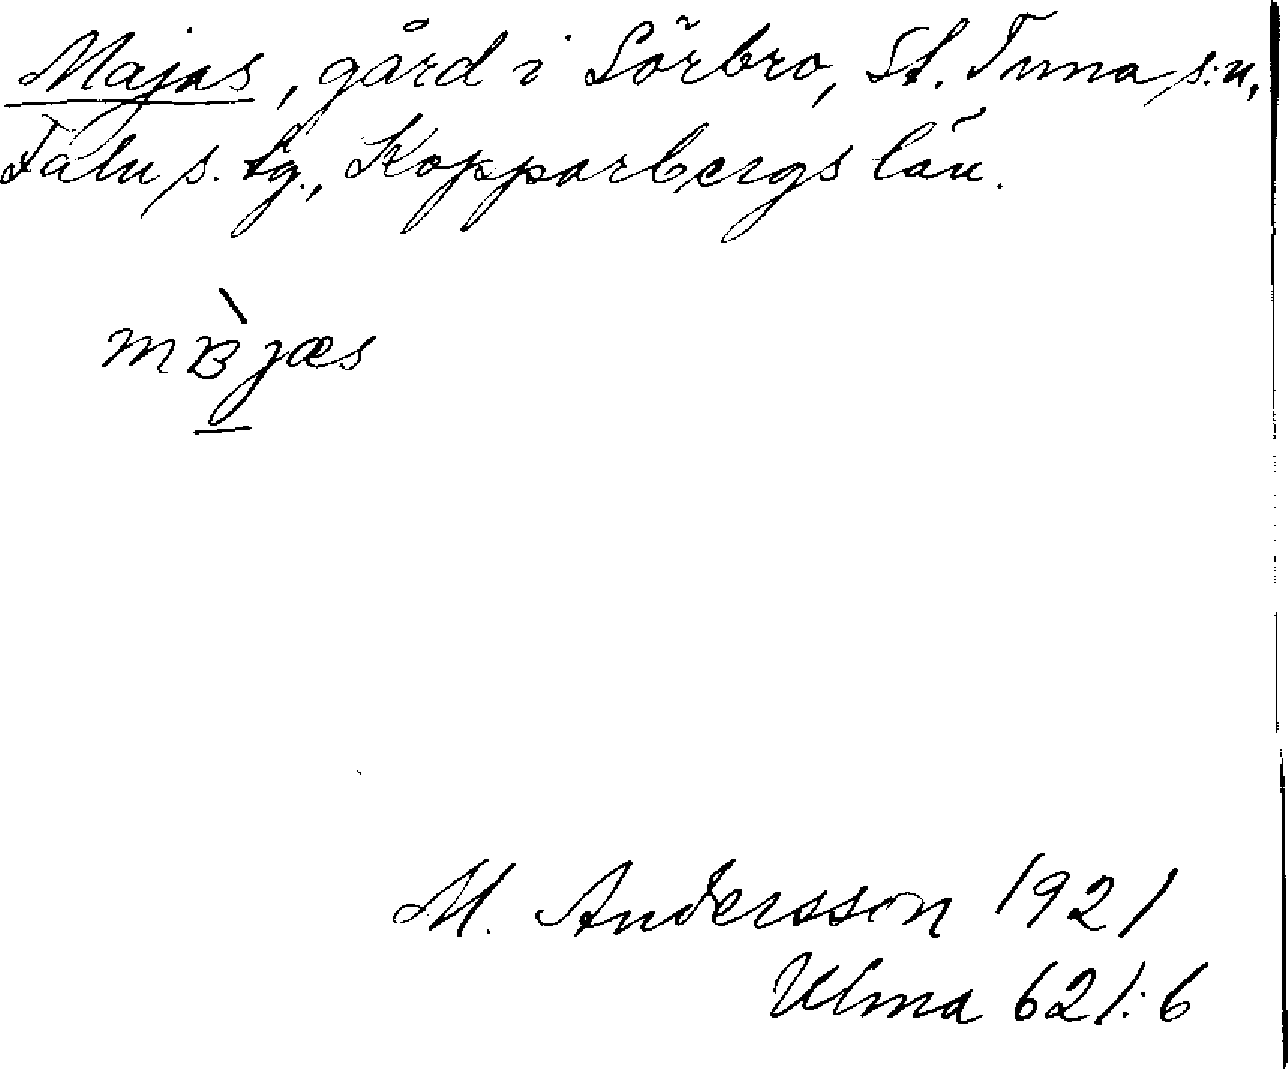 Majas, gård i Sörbro, St. Tuna s:n,
Falu s. tg., Kopparbergs län.
mɐ̀jæs
M. Andersson 1921
Ulma 621:6